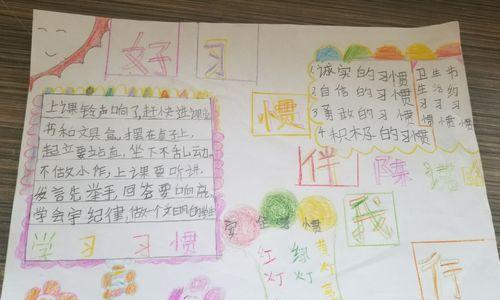 好习
惯
伴
我
行
上课铃声响了,赶快进课室
书和文具盒,摆在桌子上
起立要站直,坐下不乱动,
不做小作,上课要听讲
发言先举手,回答要响亮
学会守纪律,做个文明的学生
学习习惯
1 诚实的习惯
2 自信的习惯
3 勇敢的习惯
4 积极的习惯
卫生
生活
习习
惯惯
安全习惯
红灯
绿灯
黄灯